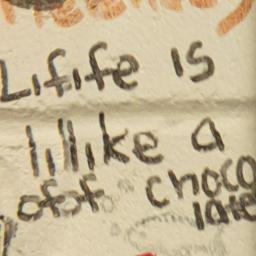 Lifife is
lillike a
ofof choco
late